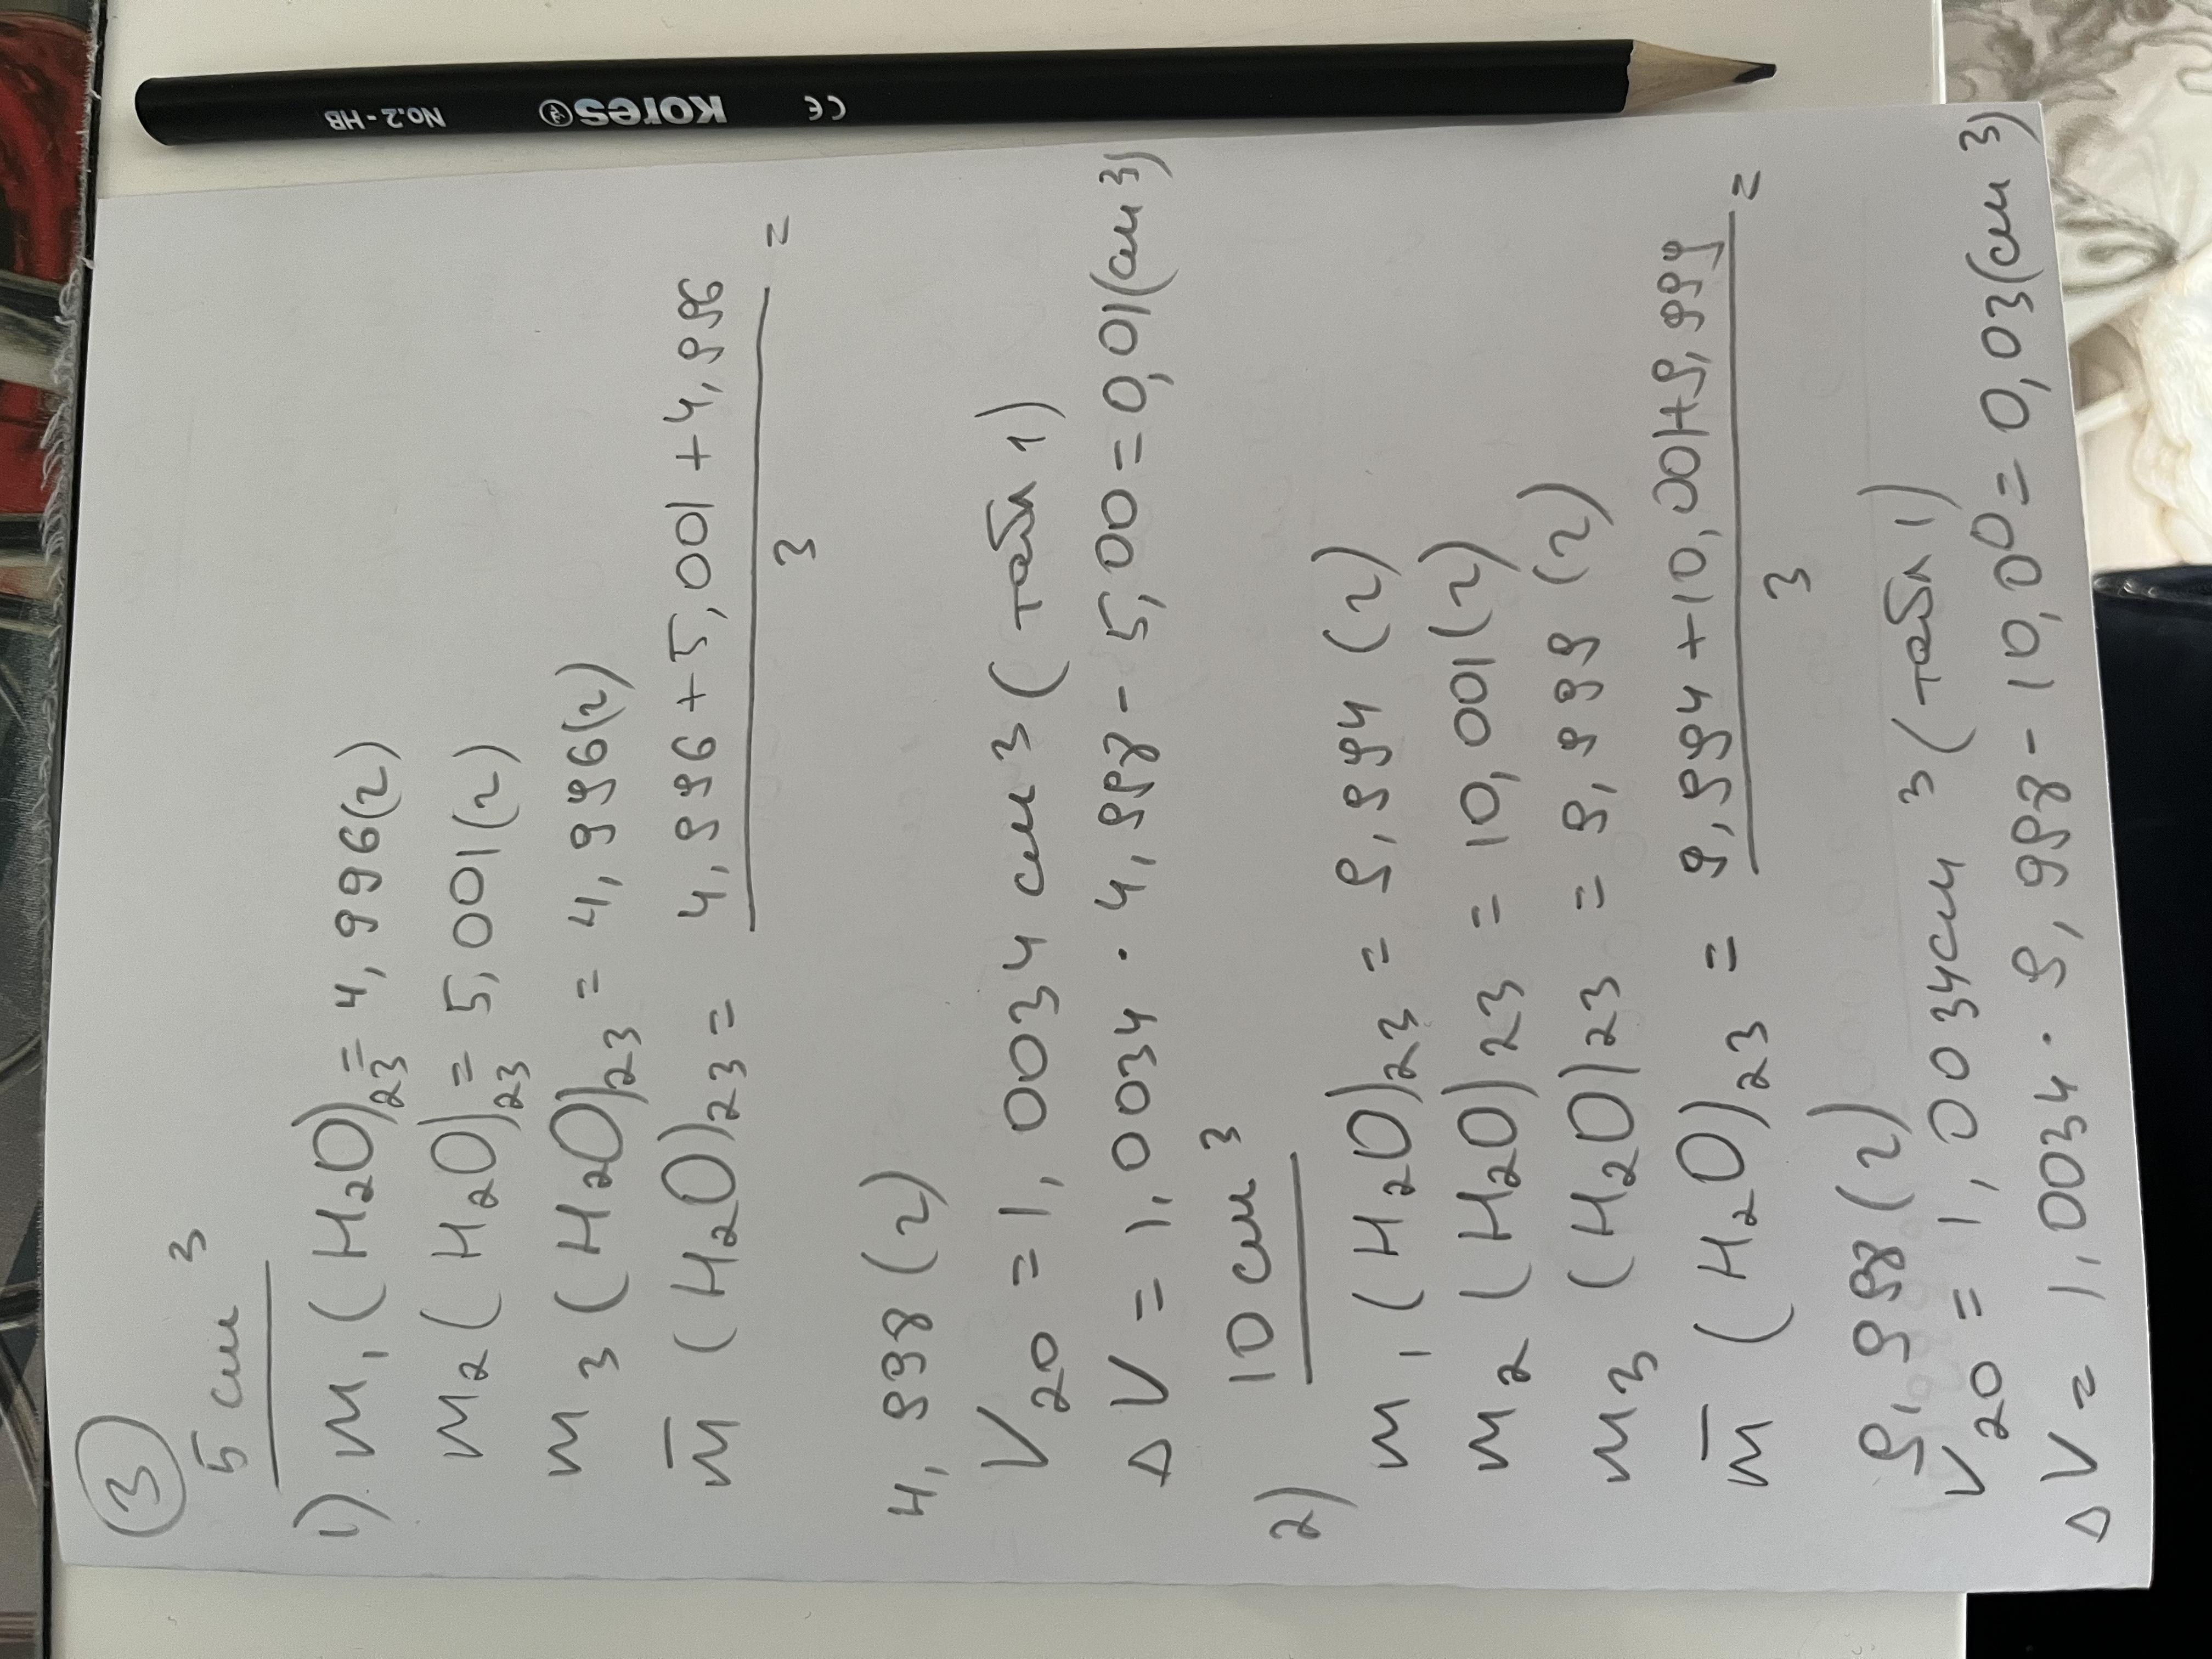 ③
5 см³
1) m₁(H₂O)₂₃ = 4,996(г)
m₂(H₂O)₂₃ = 5,001(г)
m₃(H₂O)₂₃ = 4,996(г)
m̅ (H₂O)₂₃ = 4,996 + 5,001 + 4,996 =
3
4,998(г)
V₂₀ = 1,0034 см³ (табл 1)
ΔV = 1,0034 · 4,998 - 5,00 = 0,01(см³)
10 см³
2)
m₁(H₂O)₂₃ = 9,994 (г)
m₂(H₂O)₂₃ = 10,001(г)
m₃(H₂O)₂₃ = 9,999 (г)
m̅ (H₂O)₂₃ = 9,994 + 10,001+9,999 =
3
9,998(г)
V₂₀ = 1,0034см³ (табл 1)
ΔV = 1,0034 · 9,998 - 10,00 = 0,03(см³)
No.2-HB Kores CE